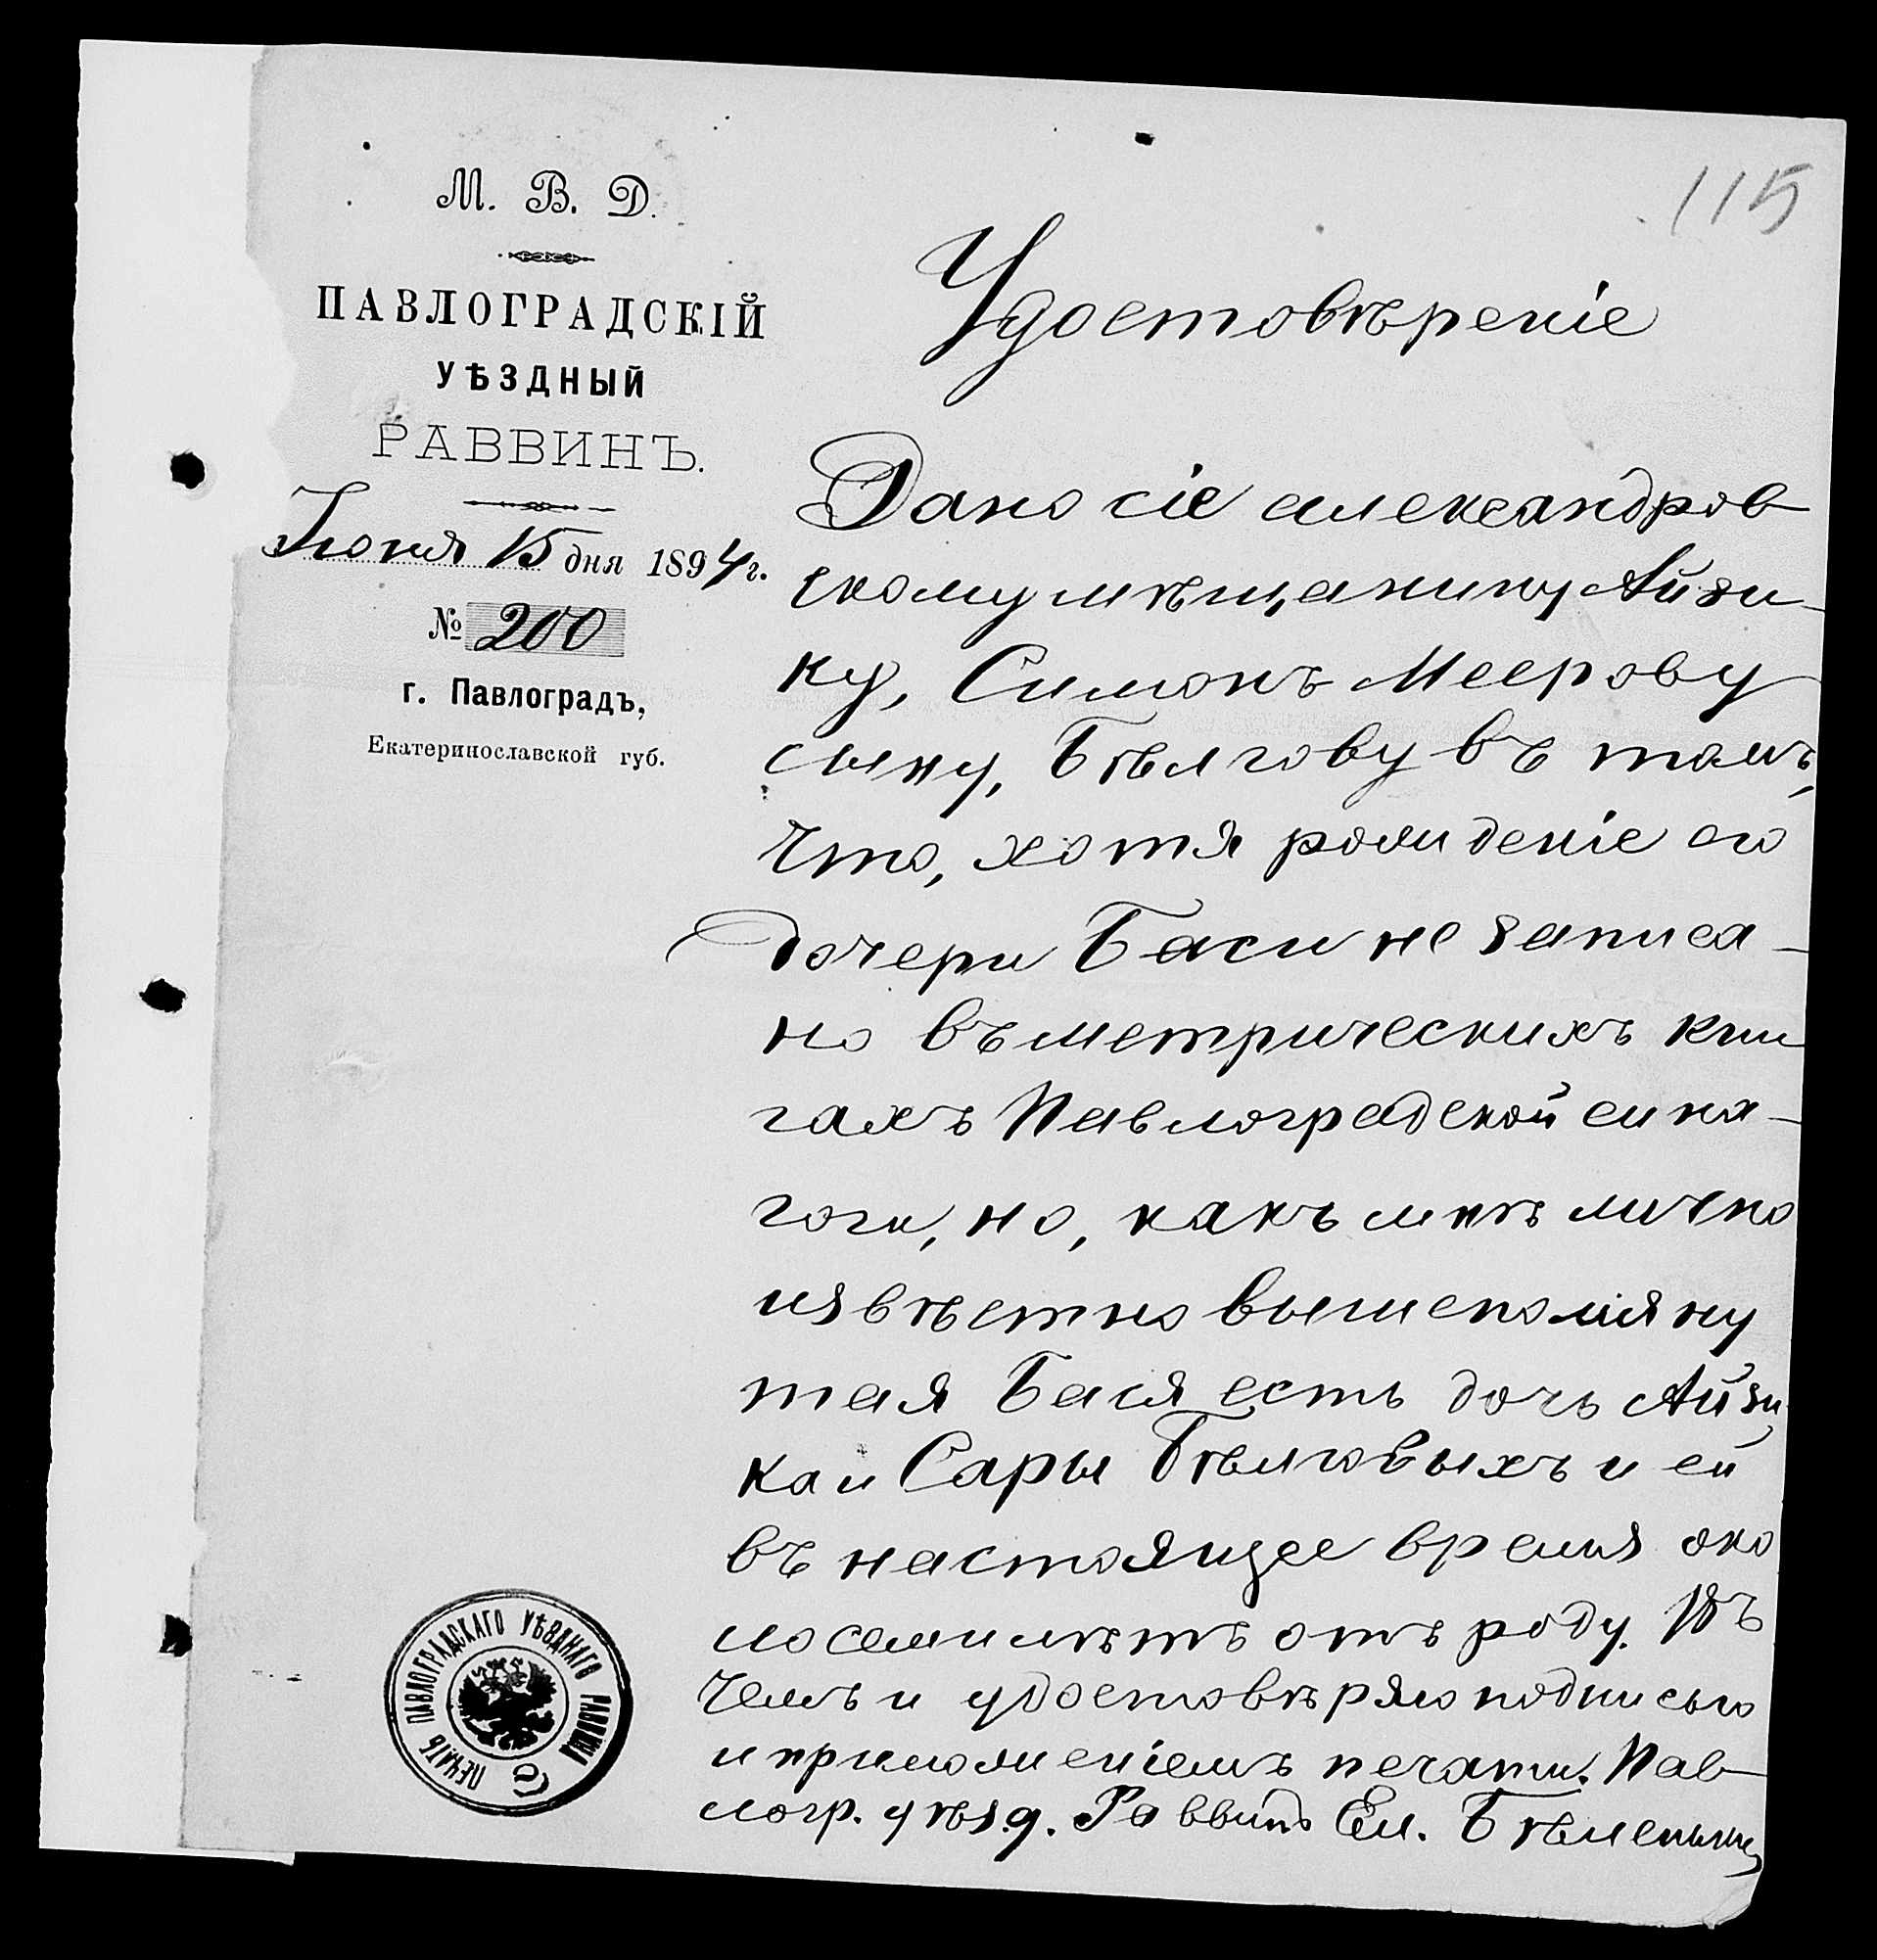 115
М. В. Д.
ПАВЛОГРАДСКІЙ
УѢЗДНЫЙ
РАВВИНЪ.
Іюня 15 дня 1894 г.
№ 200
г. Павлоградъ,
Екатеринославской губ.
Удостовѣреніе
Дано сіе александров-
скому мѣщанину Айзи-
ку, Симонъ Меерову
сыну, Бѣлгову въ томъ,
что, хотя рожденіе его
дочери Баси не записа-
но въ метрическихъ кни
гахъ Павлоградской сина-
гоги, но, какъ мнѣ лично
извѣстно вышепомяну
тая Бася есть дочь Айзи-
ка и Сары Бѣлговыхъ и ей
въ настоящее время око
ло семи лѣтъ отъ роду. Въ
чемъ и удостовѣряю подписью
и приложеніемъ печати. Пав-
логр. уѣзд. Раввинъ Ел. Бѣленькій
ПЕЧАТЬ ПАВЛОГРАДСКАГО УѢЗДНАГО РАВВИНА